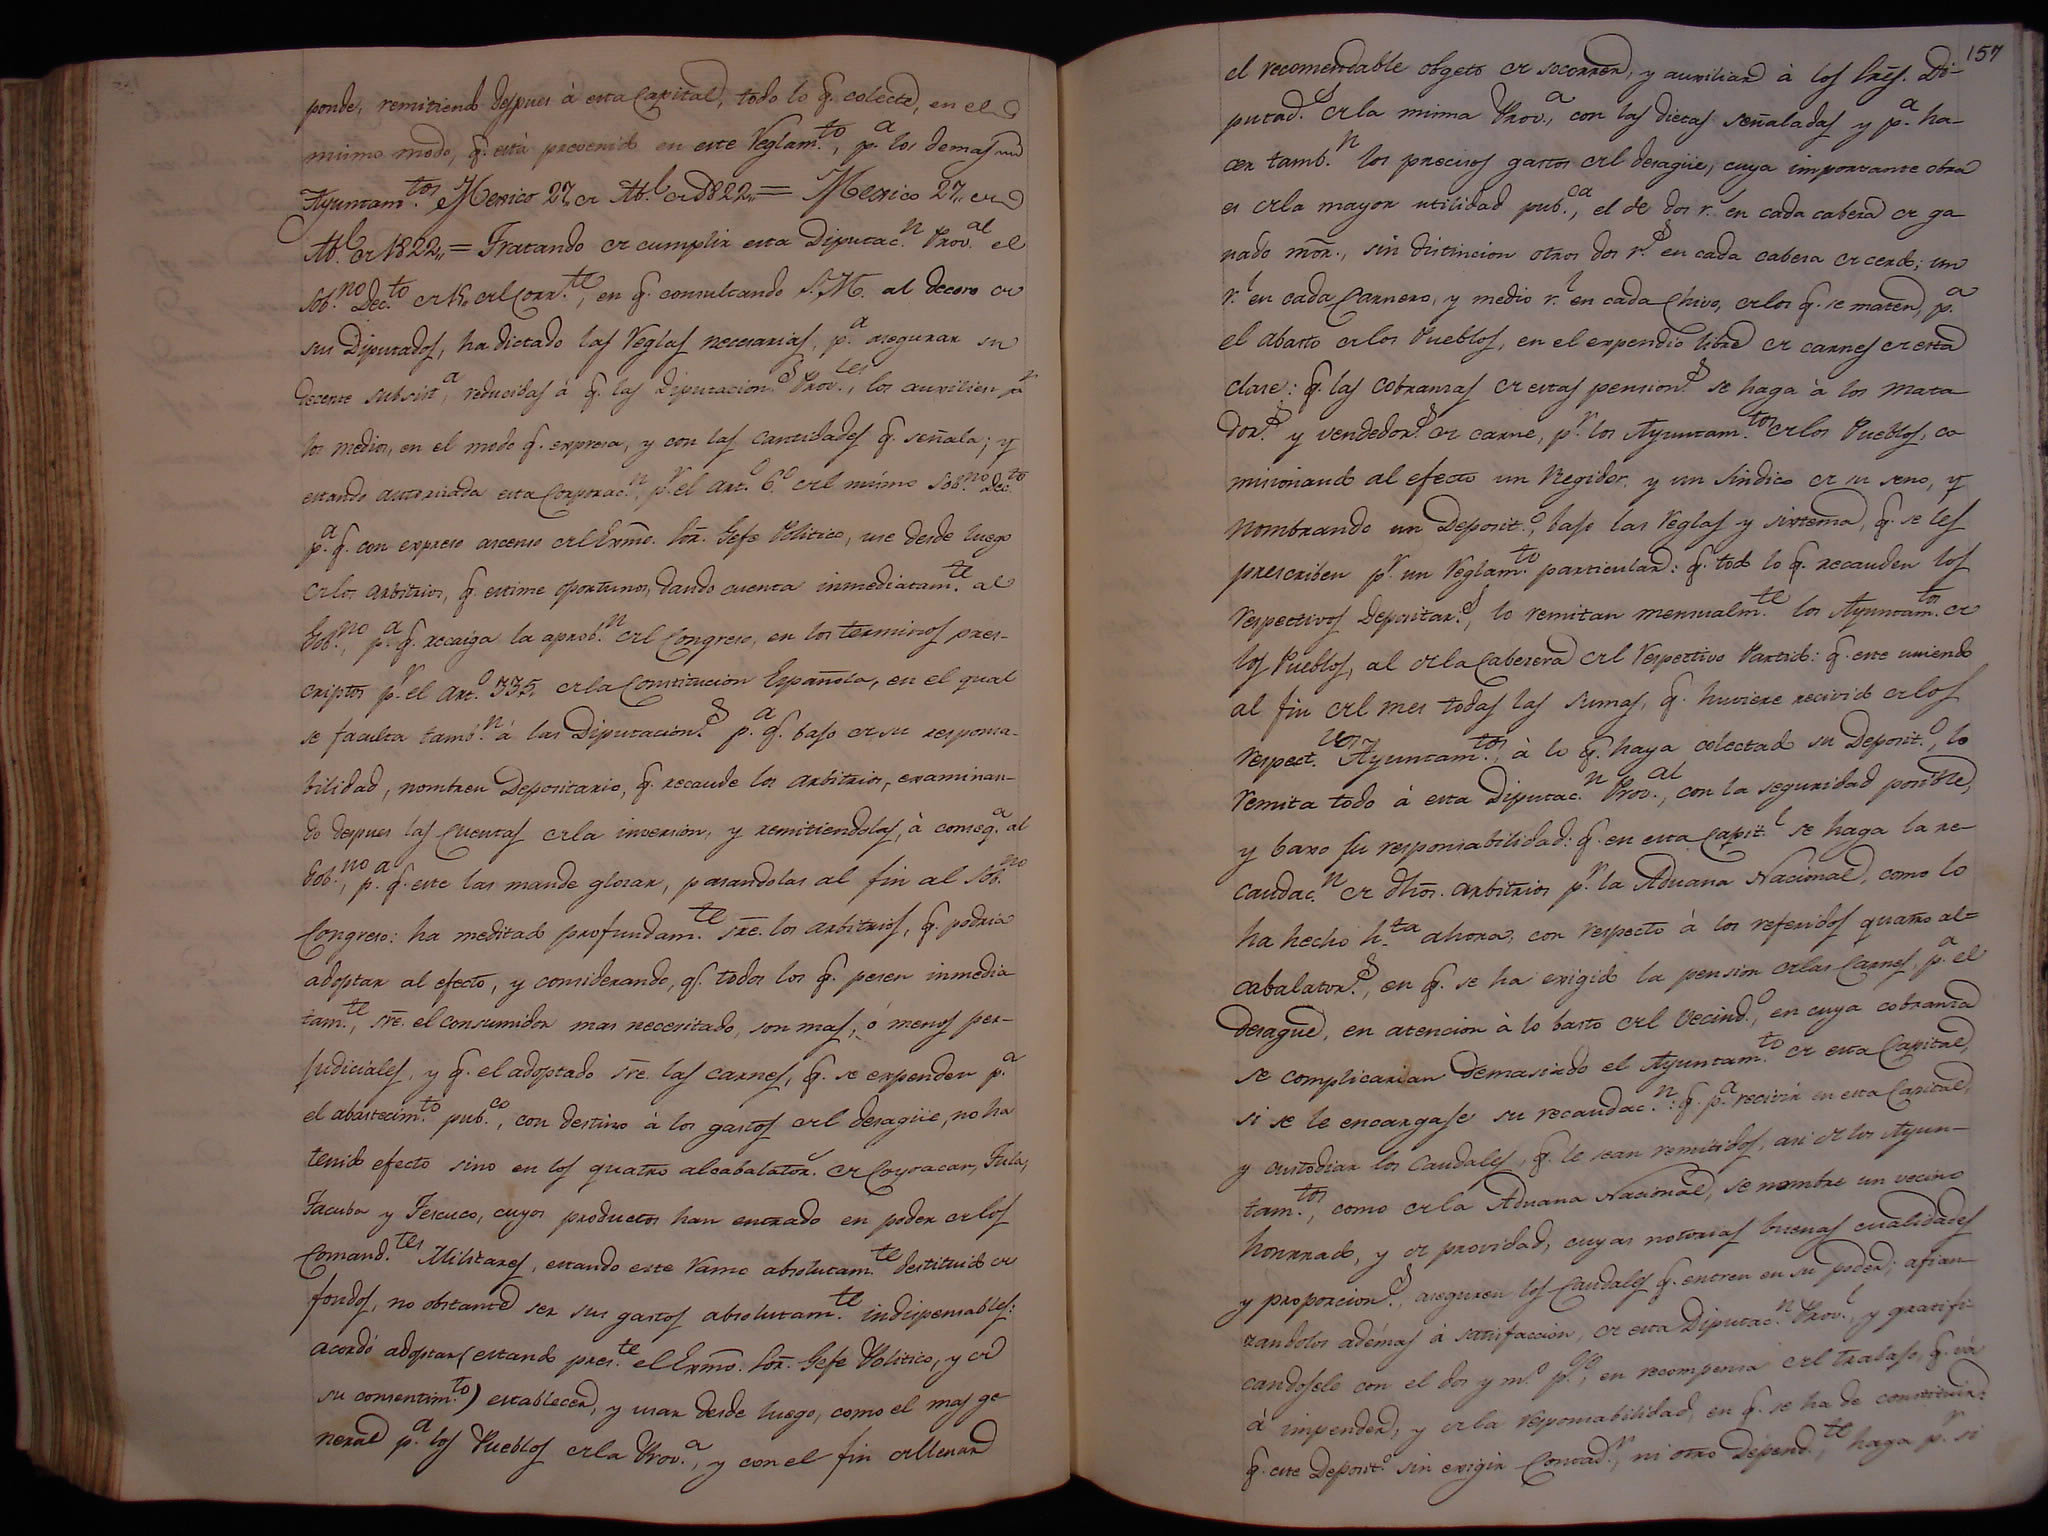 ponde, remitiendo despues à esta Capital, todo lo q. colecte, en el
mismo modo, q. está prevenido en este Reglam.to, p.a los demas
Ayuntam.tos Mexico 27,, de Ab.l de 1822,,= Mexico 27,, de
Ab.l de 1822,,= Tratando de cumplir esta Diputac.n Prov.al el
Sob.no Dec.to de 15, del Corr.te, en q. consultando S.M. al decoro de
sus Diputados, ha dictado las Reglas necesarias, p.a asegurar su
decente subsist.a, reducidas à q. las Diputacion.s Prov.les, los auxilien p.r
los medios, en el modo q. expresa, y con las cantidades q. señala; y
estando autorizada esta Corporac.n, p.r el art.o 6.o del mismo Sob.no Dec.to
p.a q. con expreso ascenso del Exmo. Sor. Gefe Politico, use desde luego
de los arbitrios, q. estime oportunos, dando cuenta inmediatam.te al
Gob.no, p.a q. recaiga la aprob.n del Congreso, en los terminos pres-
criptos p.r el Art.o 335, de la Constitucion Española, en el qual
se faculta tamb.n à las Diputacion.s p.a q. bajo de su responsa-
bilidad, nombren Depositario, q. recaude los arbitrios, examinan-
do despues las Cuentas de la inversion, y remitiendolas, à conseq.a al
Gob.no, p.a q. este las mande glosar, pasandolas al fin al Sob.no
Congreso: ha meditado profundam.te sre. los arbitrios, q. podria
adoptar al efecto, y considerando, q. todos los q. pesen inmedia
tam.te, sre. el consumidor mas necesitado, son mas, ó menos per-
judiciales, y q. el adoptado sre. las carnes, q. se expenden p.a
el abastecim.to pub.co, con destino à los gastos del desagüe, no ha
tenido efecto sino en los quatro alcabalator.s de Coyoacan, Tula,
Tacuba y Tescuco, cuyos productos han entrado en poder de los
Comand.tes Militares, estando este ramo absolutam.te destituido de
fondos, no obstante ser sus gastos absolutam.te indispensables:
acordó adoptar (estando pres.te el Exmo. Sor. Gefe Politico, y de
su consentim.to) establecer, y usar desde luego, como el mas ge-
neral p.a los Pueblos de la Prov.a, y con el fin de llenar
157
el recomendable objeto de socorrer, y auxiliar à los Sres. Di-
putad.s de la misma Prov.a, con las dietas señaladas y p.a ha-
cer tamb.n los precisos gastos del desagüe, cuya importante obra
es de la mayor utilidad pub.ca, el de dos r.s en cada cabeza de ga
nado mor., sin distincion otros dos r.s en cada cabeza de cerdo; un
r.l en cada Carnero, y medio r.l en cada Chivo, de los q. se maten, p.a
el abasto de los Pueblos, en el expendio libre de carnes de esta
clase: q. las cobranzas de estas pension.s se haga à los Mata
dor.s y vendedor.s de carne, p.r los Ayuntam.tos de los Pueblos, co
misionando al efecto un Regidor, y un Sindico de su seno, y
nombrando un Deposit.o, bajo las reglas y sistema, q. se les
prescriben p.r un Reglam.to particular: q. todo lo q. recauden los
respectivos Depositar.s, lo remitan mensualm.te los Ayuntam.tos de
los Pueblos, al de la Cabezera del respectivo Partido: q. este uniendo
al fin del mes todas las sumas, q. huviere recivido de los
respect.vos Ayuntam.tos, à lo q. haya colectado su Deposit.o, lo
remita todo à esta Diputac.n Prov.al, con la seguridad posible,
y baxo su responsabilidad: q. en esta Capit.l se haga la re-
caudac.n de dhos. arbitrios p.r la Aduana Nacional, como lo
ha hecho h.ta ahora, con respecto à los referidos quatro al=
cabalator.s, en q. se ha exigido la pension de las Carnes, p.a el
desague, en atencion à lo basto del Vecind.o, en cuya cobranza
se complicarian demasiado el Ayuntam.to de esta Capital,
si se le encargase su recaudac.n: q. p.a recivir en esta Capital,
y custodiar los Caudales, q. le sean remitidos, asi de los Ayun-
tam.tos, como de la Aduana Nacional, se nombre un vecino
honrrado, y de providad, cuyas notorias buenas cualidades
y proporcion.s, aseguren los Caudales q. entren en su poder; afian-
zandolos adémas à satisfaccion, de esta Diputac.n Prov.l, y gratifi-
candosele con el dos y m.o p.%, en recompensa del trabajo, q. vá
à impender, y de la responsabilidad, en q. se ha de constituir:
q. este Deposit.o sin exigir Contad.r, ni otro Depend.te, haga p.r si